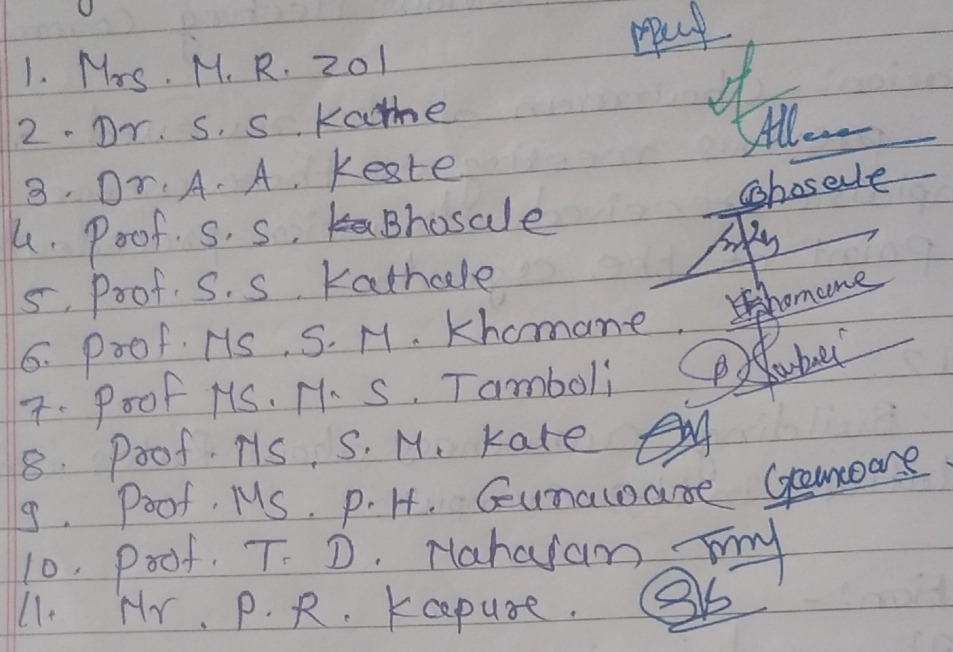 1. Mrs. M. R. Zol
2. Dr. S. S. Kathe
3. Dr. A. A. Keste
4. Prof. S. S. Bhosale Bhosale
5. Prof. S. S. Kathale
6. Prof. Ms. S. M. Khomane. Khomane
7. Prof Ms. M. S. Tamboli
8. Prof. Ms. S. M. Kate
9. Prof. Ms. P. H. Gunaware
10. Prof. T. D. Mahajan
11. Mr. P. R. Kapure.